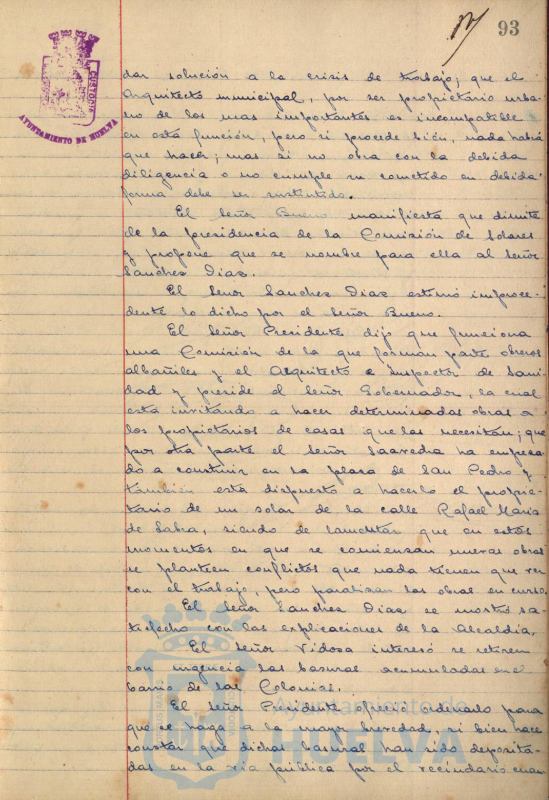 93
CUSTODIA
AYUNTAMIENTO DE HUELVA
dar solución a la crisis de trabajo; que el
Arquitecto municipal, por ser propietario urba-
no de los mas importantes es incompatible
en esta función, pero si procede bien, nada habrá
que hacer; mas si no obra con la debida
diligencia o no cumple su cometido en debida
forma debe ser sustituido.
El Señor Bueno manifiesta que dimite
de la presidencia de la Comisión de Solares
y propone que se nombre para ella al Señor
Sanchez Dias.
El Señor Sanchez Dias estimó improce-
dente lo dicho por el Señor Bueno.
El Señor Presidente dijo que funciona
una Comisión de la que forman parte obreros
albañiles y el Arquitecto e Inspector de Sani-
dad y preside el Señor Gobernador, la cual
está invitando a hacer determinadas obras a
los propietarios de casas que las necesitan; que
por otra parte el Señor Saavedra ha empeza-
do a construir en la plaza de San Pedro y
también está dispuesto a hacerlo el propie-
tario de un solar de la calle Rafael Maria
de Labra, siendo de lamentar que en estos
momentos en que se comienzan nuevas obras
se planteen conflictos que nada tienen que ver
con el trabajo, pero paralizan las obras en curso.
El Señor Sanchez Dias se mostró sa-
tisfecho con las explicaciones de la Alcaldía.
El Señor Vidosa interesó se retiren
con urgencia las basuras acumuladas en el
barrio de las Colonias.
El Señor Presidente ofreció ordenarlo para
que se haga a la mayor brevedad, si bien hace
constar que dichas basuras han sido deposita-
das en la via pública por el vecindario cuan-
Ayuntamiento de
HUELVA